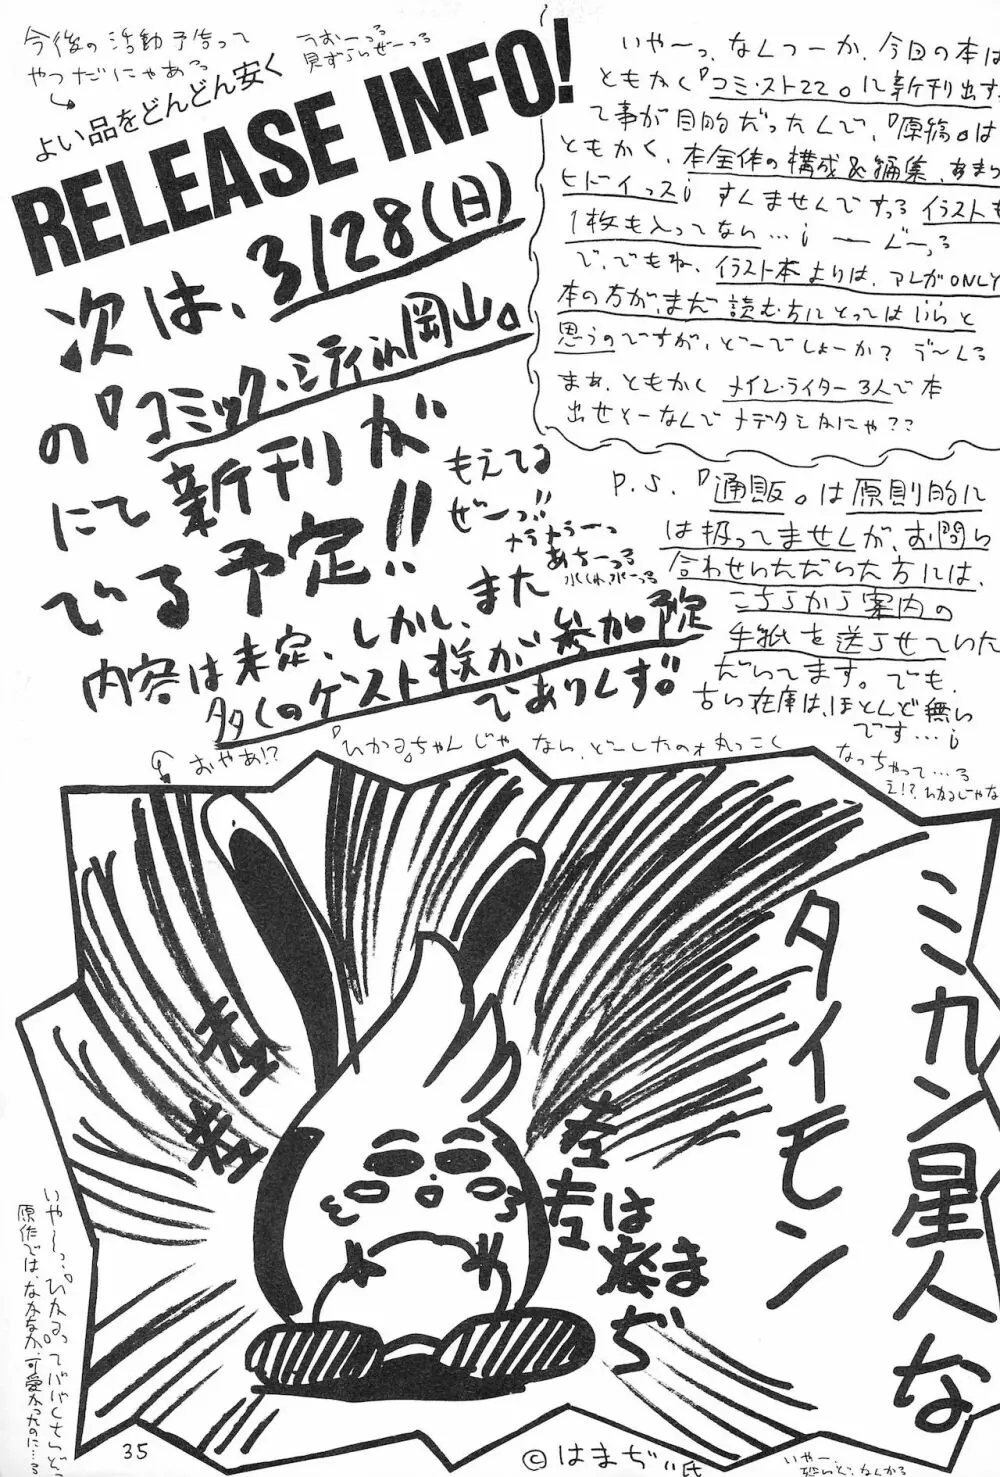 今後の活動予告って
やつだにゃある
うおーっる
見ずらいぜーっる
よい品をどんどん安く
RELEASE INFO!
次は、3/28(日)
の『コミック・シティin岡山』
にて新刊が
でいる予定!!
もえてる
ぜーっ!!
あちーっる
内容は未定、しかし、また
多くのゲスト様が参加予定
でありんす。
いやーっ、なんつーか、今日の本は
ともかく『コミスト22』に新刊出すっ
て事が目的だったんで、『原稿』は
ともかく、本全体の構成&編集、あまり
ヒドイっスi すんませんですっる イラストも
1枚も入ってない…i
で、でもね、イラスト本よりは、アレがONLY
本の方が、まだ読む方にとってはいいと
思うのですが、どーでしょーか? う〜んる
まぁ、ともかく メイン・ライター3人で本
出せそーなんで メデタシかにゃ??
P.S. 『通販』は原則的に
は扱ってませんが、お問い
合わせいただいた方には、
こちらから案内の
手紙を送らせていた
だいてます。でも、
古い在庫は、ほとんど無い
です…i
おやあ!?
『ひかる』ちゃんじゃない、どーしたのォ 丸っこく
なっちゃって…る
え!? ひかるじゃな
ミカン星人な
タイモン
はまぢ
原作では、なかなか、可愛かったのに…る
35
©はまぢぃ氏